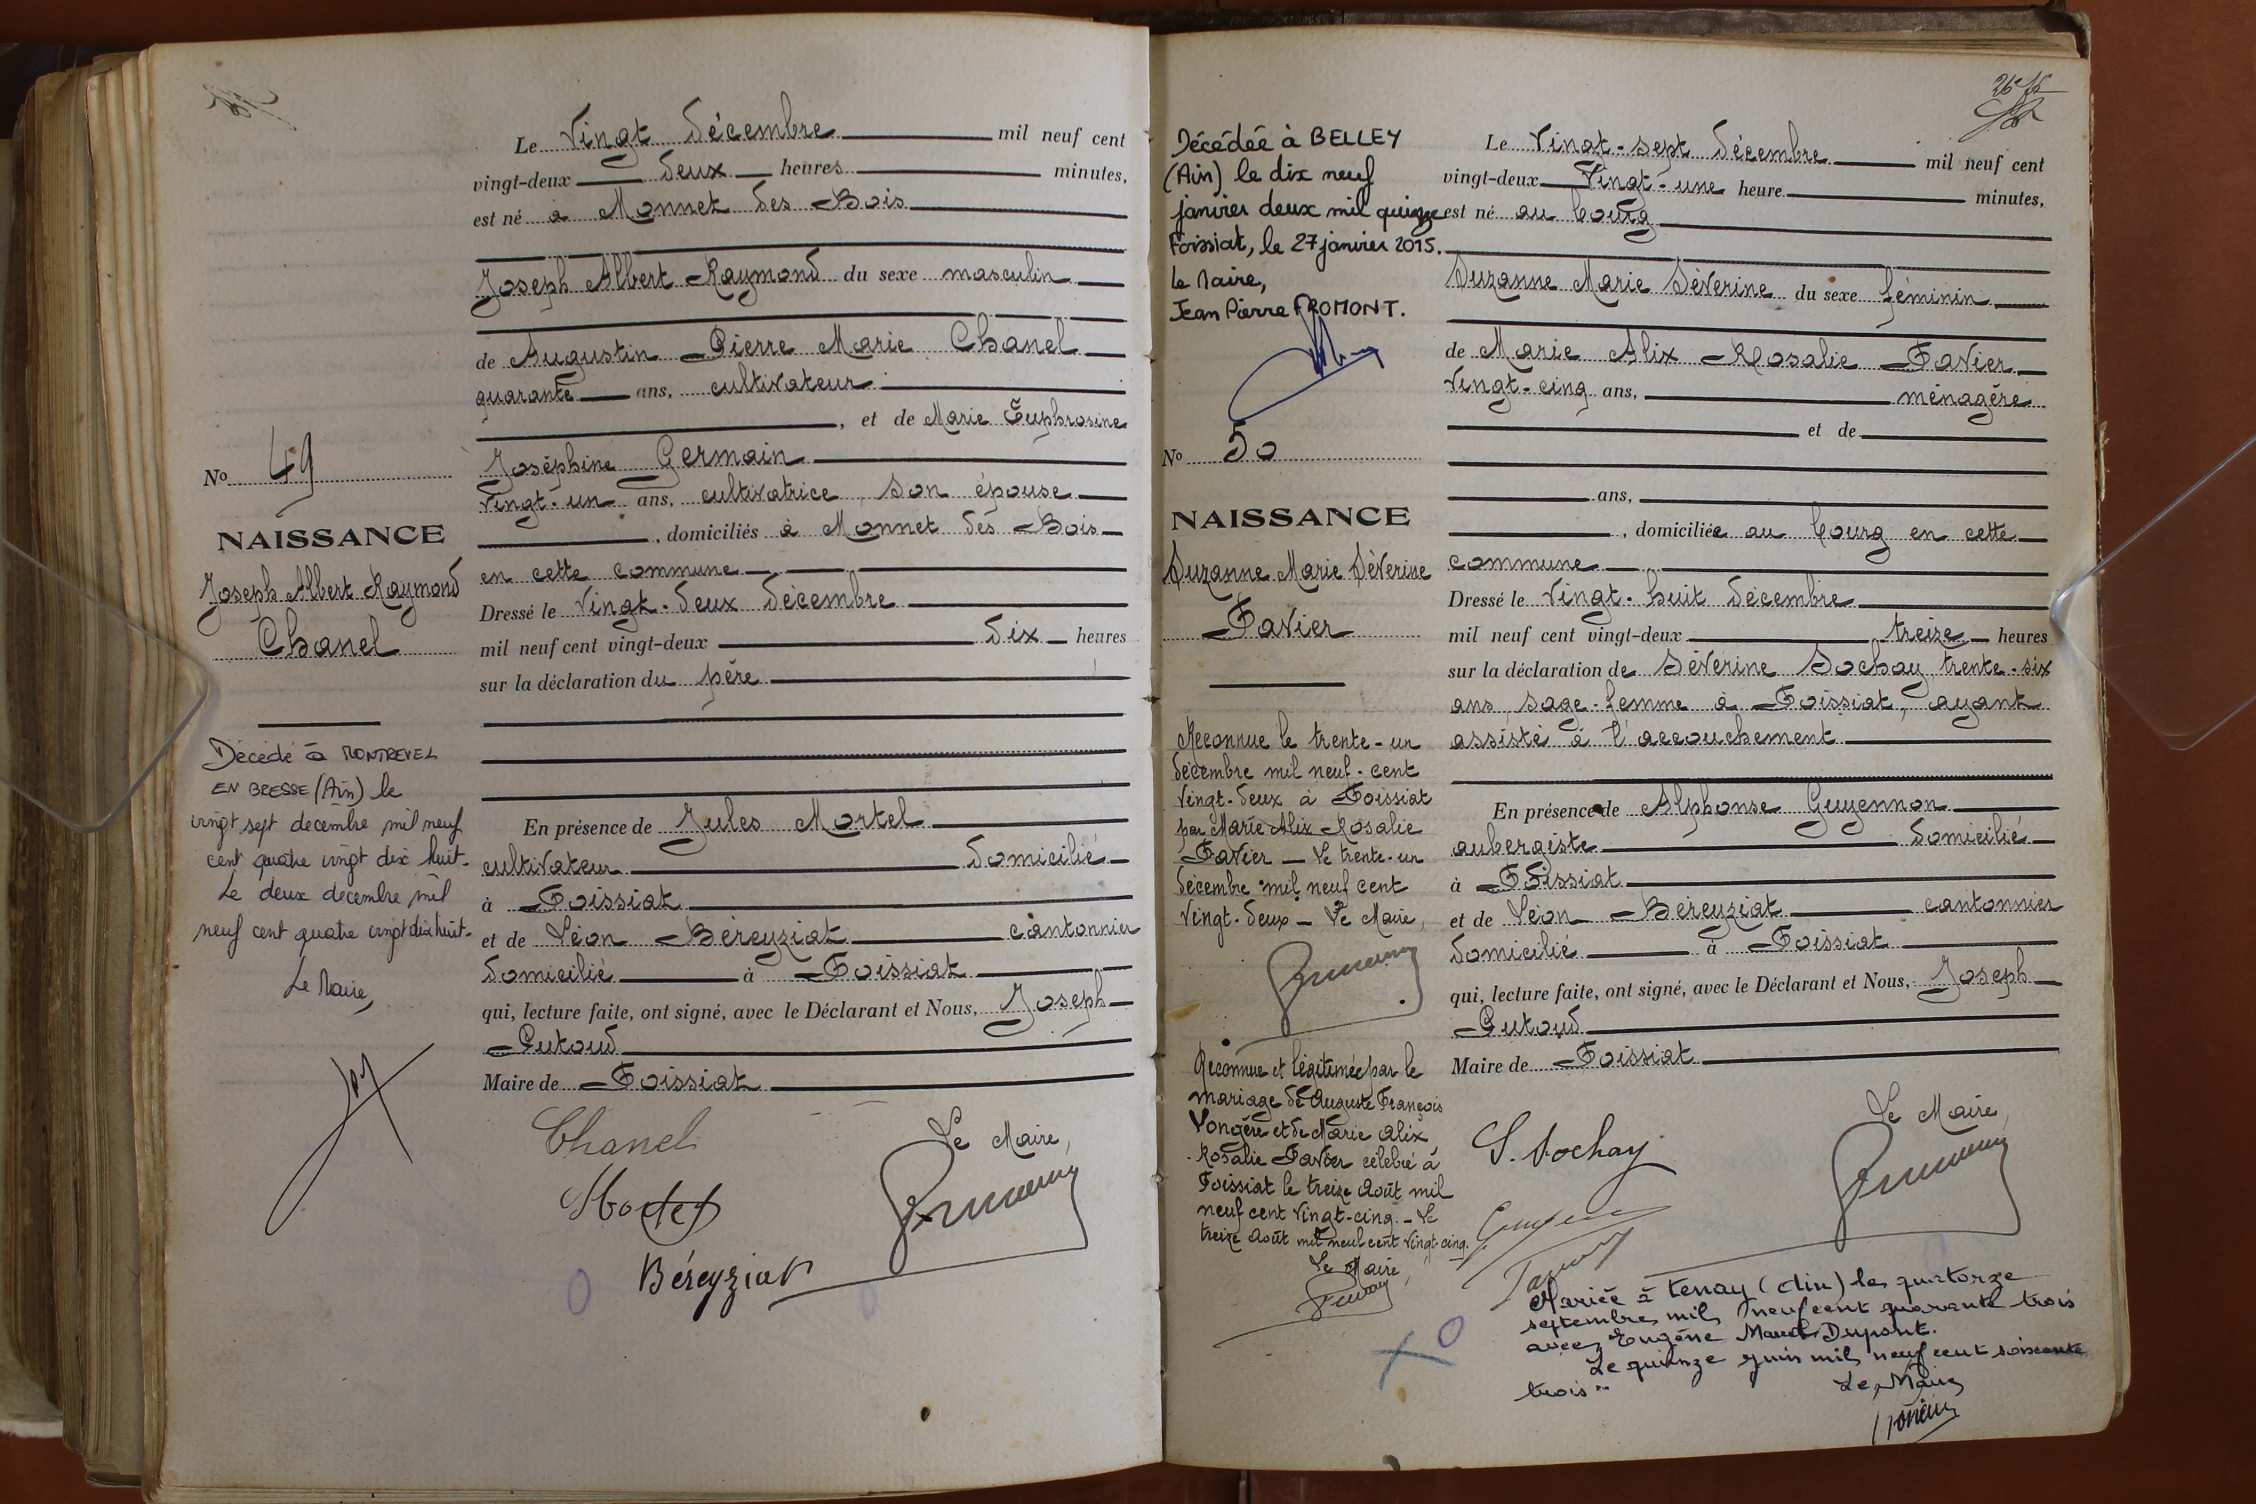 Le Vingt décembre mil neuf cent
vingt-deux deux heures minutes,
est né à Monnet des Bois
Joseph Albert Raymond du sexe masculin
de Augustin Pierre Marie Chanel
quarante ans, cultivateur
, et de Marie Euphrosine
Joséphine Germain
vingt-un ans, cultivatrice, son épouse
, domiciliés à Monnet des Bois
en cette commune
Dressé le vingt-deux décembre
mil neuf cent vingt-deux dix heures
sur la déclaration du père
En présence de Jules Mortel
cultivateur domicilié
à Foissiat
et de Léon Béreyziat cantonnier
domicilié à Foissiat
qui, lecture faite, ont signé, avec le Déclarant et Nous, Joseph
Putoud
Maire de Foissiat
Chanel
Le Maire,
Mortel
Béreyziat
No 49
NAISSANCE
Joseph Albert Raymond
Chanel
Décédé à MONTREVEL
EN BRESSE (Ain) le
vingt sept décembre mil neuf
cent quatre vingt dix huit.
Le deux décembre mil
neuf cent quatre vingt dix huit.
Le Maire,
Décédée à BELLEY
(Ain) le dix neuf
janvier deux mil quinze
Foissiat, le 27 janvier 2015.
Le Maire,
Jean Pierre FROMONT.
No 50
NAISSANCE
Suzanne Marie Séverine
Favier
Reconnue le trente-un
décembre mil neuf-cent
vingt-deux à Foissiat
par Marie Alix Rosalie
Favier - Le trente-un
décembre mil neuf cent
vingt-deux - Le Maire,
Reconnue et légitimée par le
mariage de Auguste François
Vongère et de Marie Alix
Rosalie Favier célébré à
Foissiat le treize Août mil
neuf cent vingt-cinq. - Le
treize Août mil neuf cent vingt-cinq.
Le Maire,
Le Vingt-sept décembre mil neuf cent
vingt-deux Vingt-une heure minutes,
est né au bourg
Suzanne Marie Séverine du sexe féminin
de Marie Alix Rosalie Favier
Vingt-cinq ans, ménagère
et de
ans,
, domiciliée au bourg en cette
commune
Dressé le vingt-huit décembre
mil neuf cent vingt-deux treize heures
sur la déclaration de Séverine Sochay trente-six
ans, sage-femme à Foissiat, ayant
assisté à l'accouchement
En présence de Alphonse Guyennon
aubergiste domicilié
à Foissiat
et de Léon Béreyziat cantonnier
domicilié à Foissiat
qui, lecture faite, ont signé, avec le Déclarant et Nous, Joseph
Putoud
Maire de Foissiat
Le Maire,
S. Sochay
Mariée à Tenay (Ain) le quatorze
septembre mil neuf cent quarante trois
avec Eugène Dupont.
Le quinze juin mil neuf cent soixante
trois
Le Maire